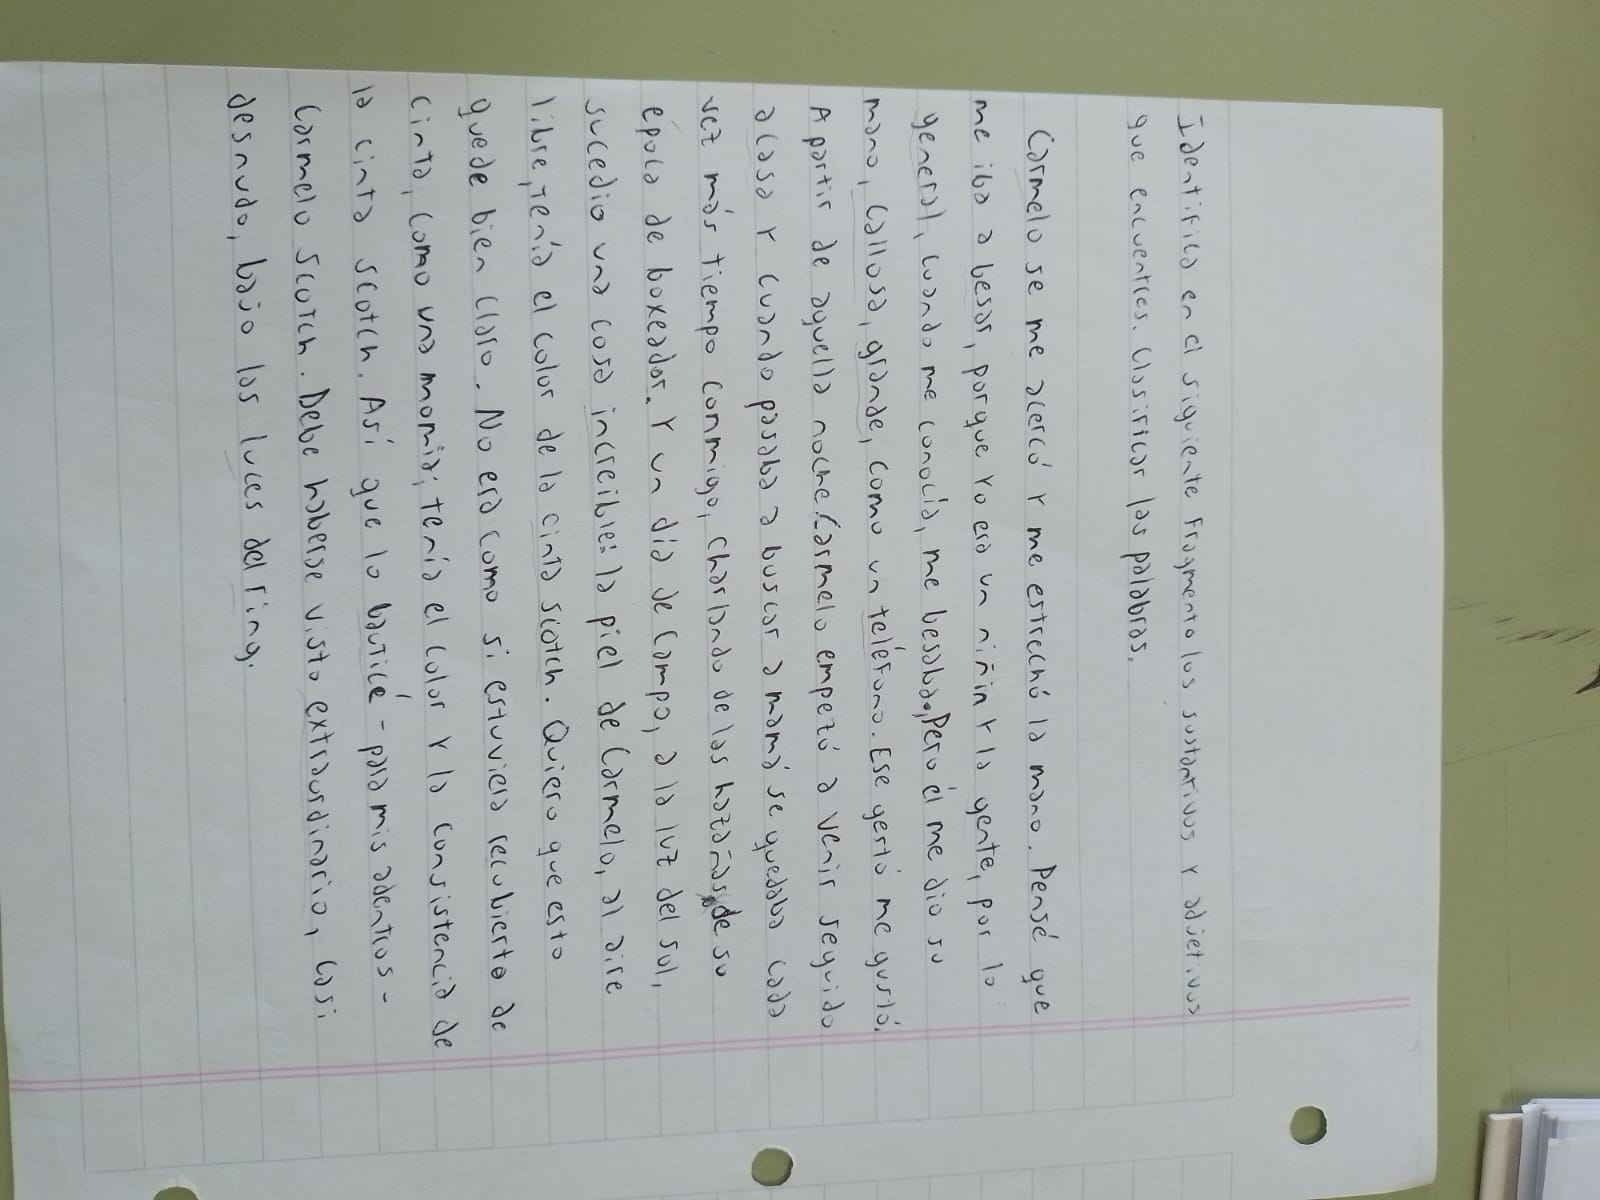 Identifica en el siguiente fragmento los sustantivos y adjetivos
que encuentres. Clasificar las palabras.
Carmelo se me acercó y me estrechó la mano. Pensé que
me iba a besar, porque yo era un niñin y la gente, por lo
general, cuando me conocía, me besaba. Pero él me dio su
mano, callosa, grande, como un teléfomo. Ese gesto me gustó.
A partir de aquella noche. Carmelo empezó a venir seguido
acasa y cuando pasaba a buscar a mamá se quedaba cada
vez más tiempo conmigo, charlando de las hazañas de su
época de boxeador. Y un día de campo, a la luz del sol,
sucedio una cosa increible: la piel de Carmelo, al aire
libre, tenía el color de la cinta scotch. Quiero que esto
quede bien claro. No era como si estuviera recubierto de
cinta, como una momia; tenía el color y la consistencia de
la cinta scotch. Así que lo bauticé - para mis adentros -
Carmelo Scotch. Debe haberse visto extraordinario, casi
desnudo, bajo las luces del ring.